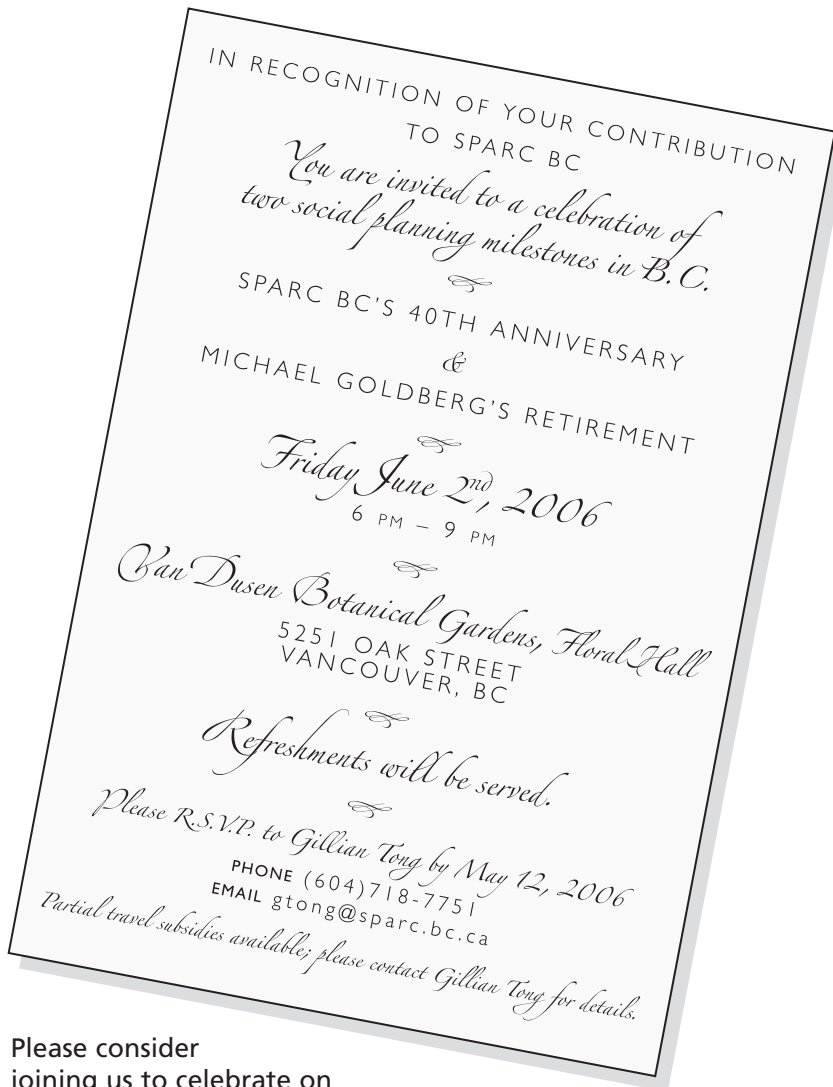 IN RECOGNITION OF YOUR CONTRIBUTION
TO SPARC BC
You are invited to a celebration of
two social planning milestones in B.C.
SPARC BC'S 40TH ANNIVERSARY
&
MICHAEL GOLDBERG'S RETIREMENT
Friday June 2nd, 2006
6 PM – 9 PM
Van Dusen Botanical Gardens, Floral Hall
5251 OAK STREET
VANCOUVER, BC
Refreshments will be served.
Please R.S.V.P. to Gillian Tong by May 12, 2006
PHONE (604)718-7751
EMAIL gtong@sparc.bc.ca
Partial travel subsidies available; please contact Gillian Tong for details.
Please consider
joining us to celebrate on